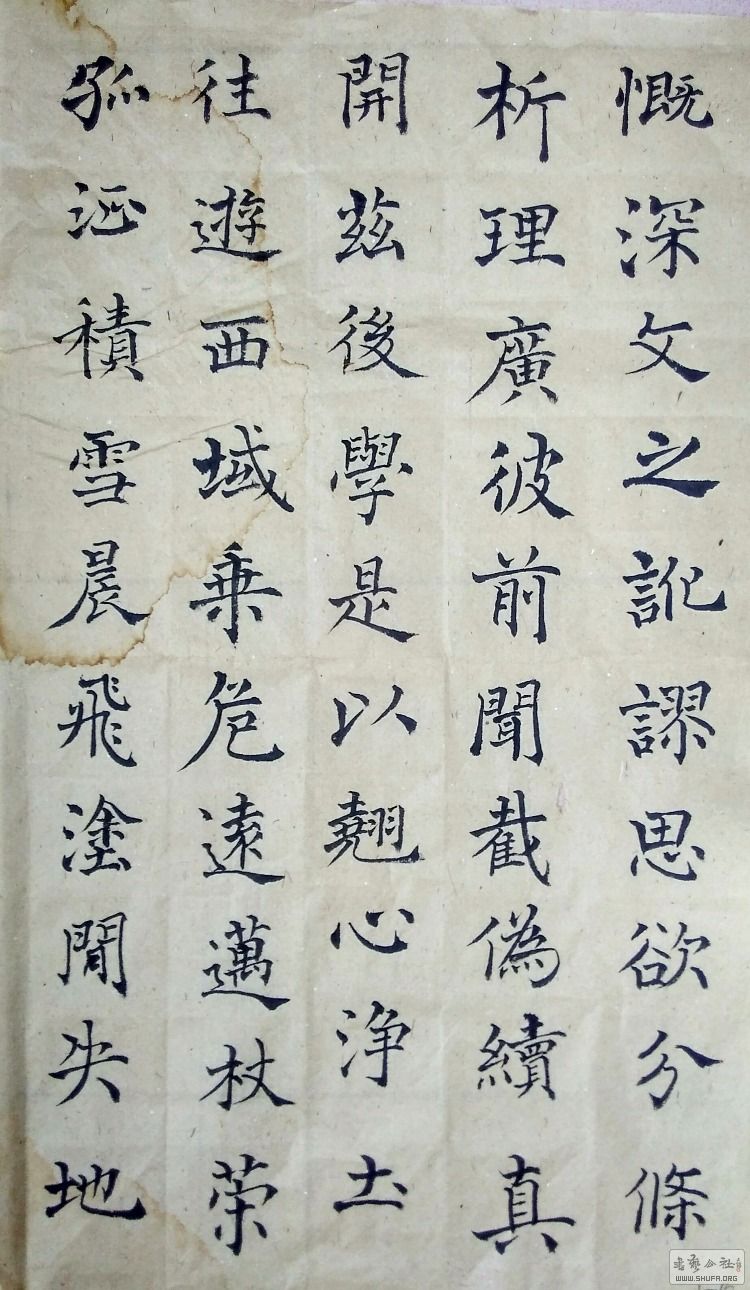 慨深文之訛謬思欲分條
析理廣彼前聞截偽續真
開茲後學是以翹心浄土
往遊西域乗危遠邁杖策
孤征積雪晨飛塗閒失地
書藝公社
WWW.SHUFA.ORG